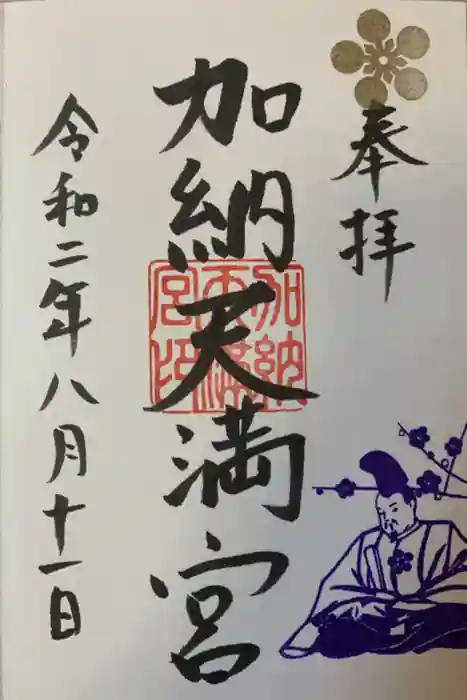 奉拝
加納天満宮
加納天満宮印
令和二年八月十一日